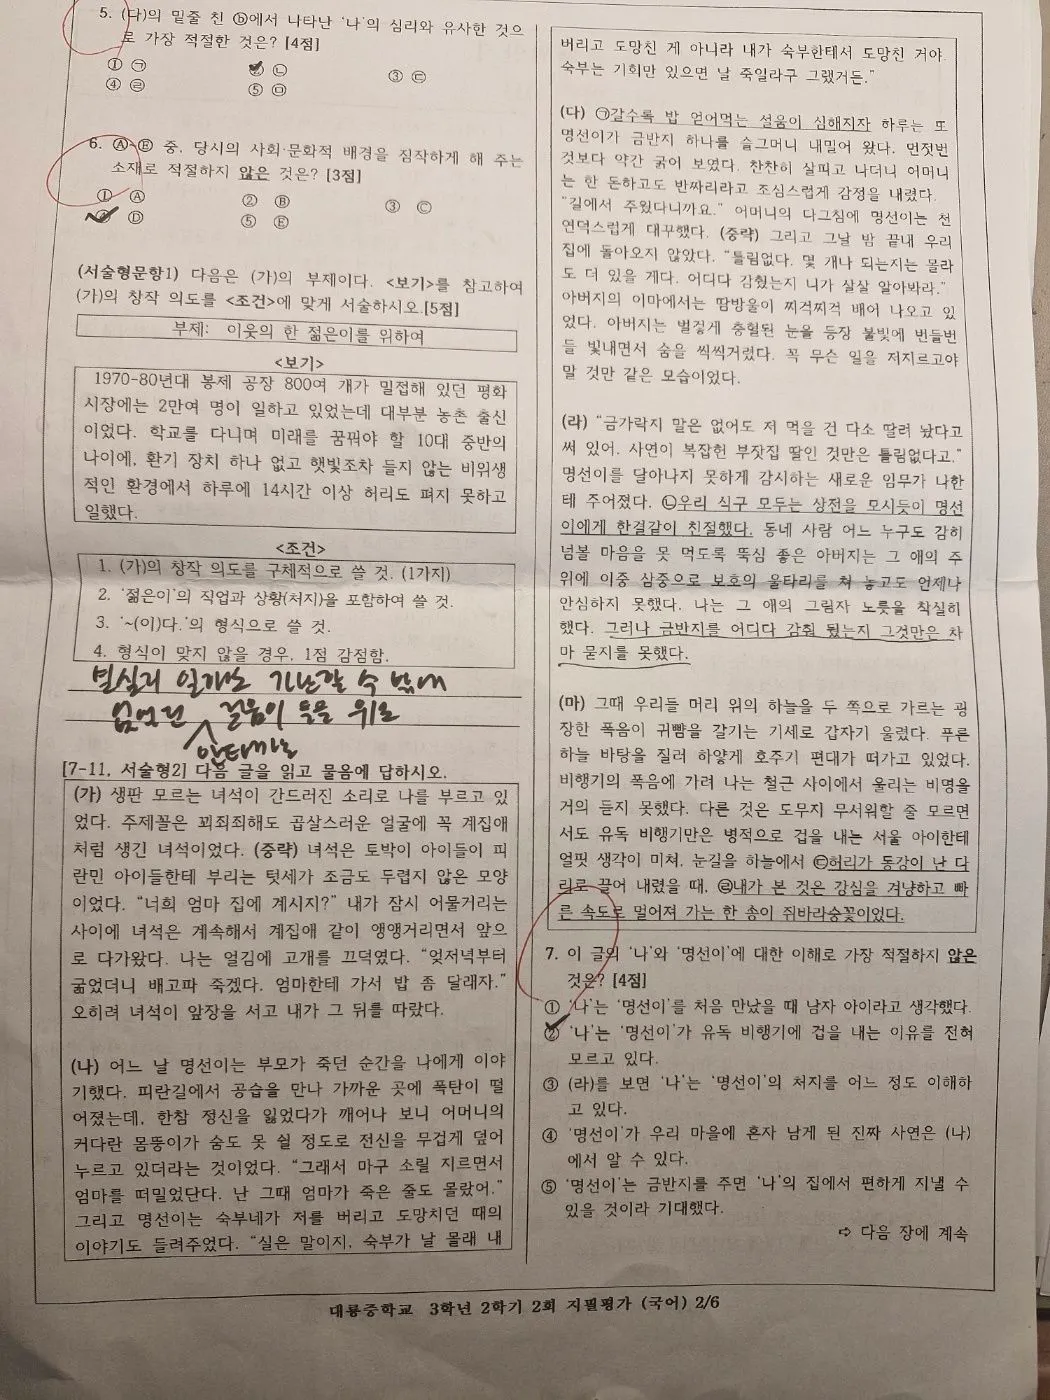 5. (다)의 밑줄 친 ⓑ에서 나타난 '나'의 심리와 유사한 것으
로 가장 적절한 것은? [4점]
① ㉠ ② ㉡ ③ ㉢
④ ㉣ ⑤ ㉤
6. Ⓐ~Ⓔ 중, 당시의 사회·문화적 배경을 짐작하게 해 주는
소재로 적절하지 않은 것은? [3점]
① Ⓐ ② Ⓑ ③ Ⓒ
④ Ⓓ ⑤ Ⓔ
(서술형문항1) 다음은 (가)의 부제이다. <보기>를 참고하여
(가)의 창작 의도를 <조건>에 맞게 서술하시오.[5점]
부제: 이웃의 한 젊은이를 위하여
<보기>
1970-80년대 봉제 공장 800여 개가 밀접해 있던 평화
시장에는 2만여 명이 일하고 있었는데 대부분 농촌 출신
이었다. 학교를 다니며 미래를 꿈꿔야 할 10대 중반의
나이에, 환기 장치 하나 없고 햇빛조차 들지 않는 비위생
적인 환경에서 하루에 14시간 이상 허리도 펴지 못하고
일했다.
<조건>
1. (가)의 창작 의도를 구체적으로 쓸 것. (1가지)
2. '젊은이'의 직업과 상황(처지)을 포함하여 쓸 것.
3. '~(이)다.'의 형식으로 쓸 것.
4. 형식이 맞지 않을 경우, 1점 감점함.
일개도 가난할 수 밖에
없었던 젊음이 들을 위로
안타까운
[7-11, 서술형2] 다음 글을 읽고 물음에 답하시오.
(가) 생판 모르는 녀석이 간드러진 소리로 나를 부르고 있
었다. 주제꼴은 꾀죄죄해도 곱살스러운 얼굴에 꼭 계집애
처럼 생긴 녀석이었다. (중략) 녀석은 토박이 아이들이 피
란민 아이들한테 부리는 텃세가 조금도 두렵지 않은 모양
이었다. "너희 엄마 집에 계시지?" 내가 잠시 어물거리는
사이에 녀석은 계속해서 계집애 같이 앵앵거리면서 앞으
로 다가왔다. 나는 얼김에 고개를 끄덕였다. "잊저녁부터
굶었더니 배고파 죽겠다. 엄마한테 가서 밥 좀 달래자."
오히려 녀석이 앞장을 서고 내가 그 뒤를 따랐다.
(나) 어느 날 명선이는 부모가 죽던 순간을 나에게 이야
기했다. 피란길에서 공습을 만나 가까운 곳에 폭탄이 떨
어졌는데, 한참 정신을 잃었다가 깨어나 보니 어머니의
커다란 몸뚱이가 숨도 못 쉴 정도로 전신을 무겁게 덮어
누르고 있더라는 것이었다. "그래서 마구 소릴 지르면서
엄마를 떠밀었단다. 난 그때 엄마가 죽은 줄도 몰랐어."
그리고 명선이는 숙부네가 저를 버리고 도망치던 때의
이야기도 들려주었다. "실은 말이지, 숙부가 날 몰래 내
버리고 도망친 게 아니라 내가 숙부한테서 도망친 거야.
숙부는 기회만 있으면 날 죽일라구 그랬거든."
(다) ㉠갈수록 밥 얻어먹는 설움이 심해지자 하루는 또
명선이가 금반지 하나를 슬그머니 내밀어 왔다. 먼젓번
것보다 약간 굵어 보였다. 찬찬히 살피고 나더니 어머니
는 한 돈하고도 반짜리라고 조심스럽게 감정을 내렸다.
"길에서 주웠다니까요." 어머니의 다그침에 명선이는 천
연덕스럽게 대꾸했다. (중략) 그리고 그날 밤 끝내 우리
집에 돌아오지 않았다. "틀림없다. 몇 개나 되는지는 몰라
도 더 있을 게다. 어디다 감췄는지 니가 살살 알아봐라."
아버지의 이마에서는 땀방울이 찌걱찌걱 배어 나오고 있
었다. 아버지는 벌겋게 충혈된 눈을 등장 불빛에 번들번
들 빛내면서 숨을 씩씩거렸다. 꼭 무슨 일을 저지르고야
말 것만 같은 모습이었다.
(라) "금가락지 말은 없어도 저 먹을 건 다소 딸려 놨다고
써 있어. 사연이 복잡헌 부잣집 딸인 것만은 틀림없다고."
명선이를 달아나지 못하게 감시하는 새로운 임무가 나한
테 주어졌다. ㉡우리 식구 모두는 상전을 모시듯이 명선
이에게 한결같이 친절했다. 동네 사람 어느 누구도 감히
넘볼 마음을 못 먹도록 뚝심 좋은 아버지는 그 애의 주
위에 이중 삼중으로 보호의 울타리를 쳐 놓고도 언제나
안심하지 못했다. 나는 그 애의 그림자 노릇을 착실히
했다. 그러나 금반지를 어디다 감춰 뒀는지 그것만은 차
마 묻지를 못했다.
(마) 그때 우리들 머리 위의 하늘을 두 쪽으로 가르는 굉
장한 폭음이 귀뺨을 갈기는 기세로 갑자기 울렸다. 푸른
하늘 바탕을 질러 하얗게 호주기 편대가 떠가고 있었다.
비행기의 폭음에 가려 나는 철근 사이에서 울리는 비명을
거의 듣지 못했다. 다른 것은 도무지 무서워할 줄 모르면
서도 유독 비행기만은 병적으로 겁을 내는 서울 아이한테
얼핏 생각이 미쳐, 눈길을 하늘에서 ㉢허리가 동강이 난 다
리로 끌어 내렸을 때, ㉣내가 본 것은 강심을 겨냥하고 빠
른 속도로 멀어져 가는 한 송이 쥐바라숭꽃이었다.
7. 이 글의 '나'와 '명선이'에 대한 이해로 가장 적절하지 않은
것은? [4점]
① '나'는 '명선이'를 처음 만났을 때 남자 아이라고 생각했다.
② '나'는 '명선이'가 유독 비행기에 겁을 내는 이유를 전혀
모르고 있다.
③ (라)를 보면 '나'는 '명선이'의 처지를 어느 정도 이해하
고 있다.
④ '명선이'가 우리 마을에 혼자 남게 된 진짜 사연은 (나)
에서 알 수 있다.
⑤ '명선이'는 금반지를 주면 '나'의 집에서 편하게 지낼 수
있을 것이라 기대했다.
⇨ 다음 장에 계속
대룡중학교 3학년 2학기 2회 지필평가 (국어) 2/6